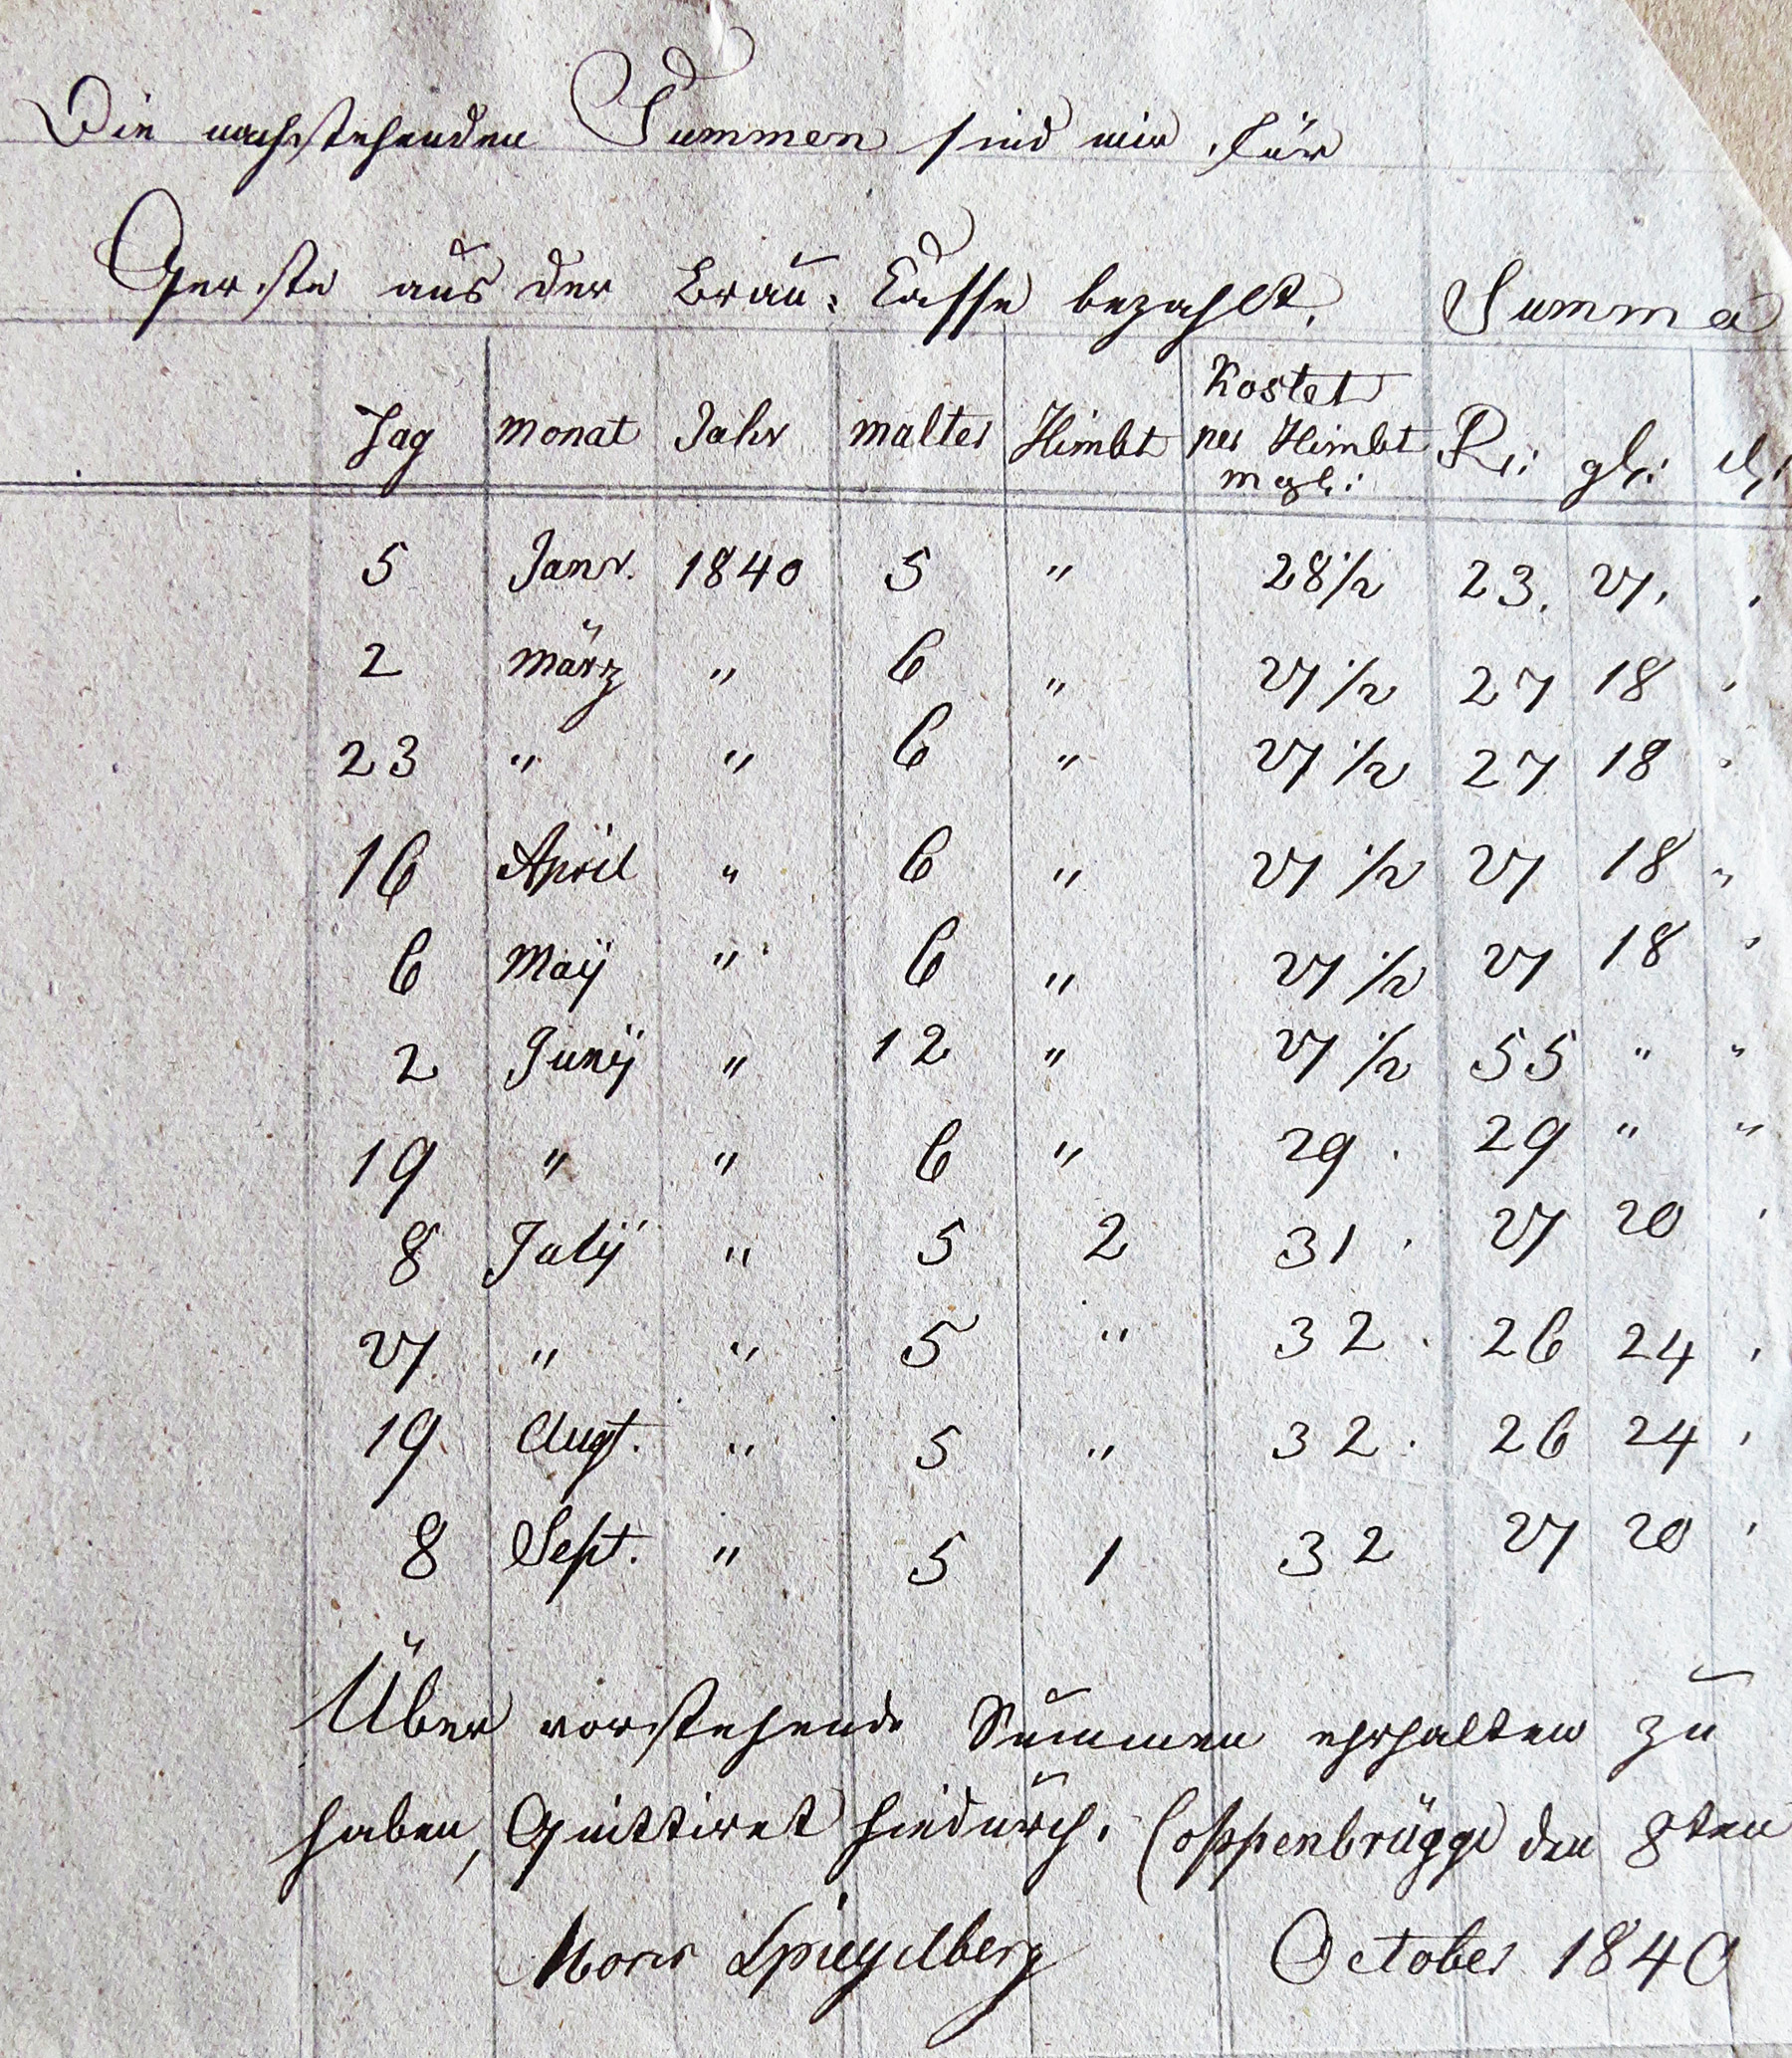 Die nachstehenden Summen sind mir für
Gerste aus der Brau: Casse bezahlt. Summa
Tag Monat Jahr Malter Himbt Kostet per Himbt mgl: R: gl: d:
5 Janr. 1840 5 " 28 1/2 23. 27. .
2 März " 6 " 27 1/2 27 18 .
23 " " 6 " 27 1/2 27 18 .
16 April " 6 " 27 1/2 27 18 "
6 Maÿ " 6 " 27 1/2 27 18 "
2 Junÿ " 12 " 27 1/2 55 " "
19 " " 6 " 29 . 29 " "
8 Julÿ " 5 2 31 . 27 20 .
27 " " 5 " 32 . 26 24 .
19 Augt. " 5 " 32 . 26 24 .
8 Sept. " 5 1 32 27 20 .
Über vorstehende Summen ehrhalten zu
haben, Quittiret hiedurch. Coppenbrügge den 8ten
Moses Spiegelberg October 1840